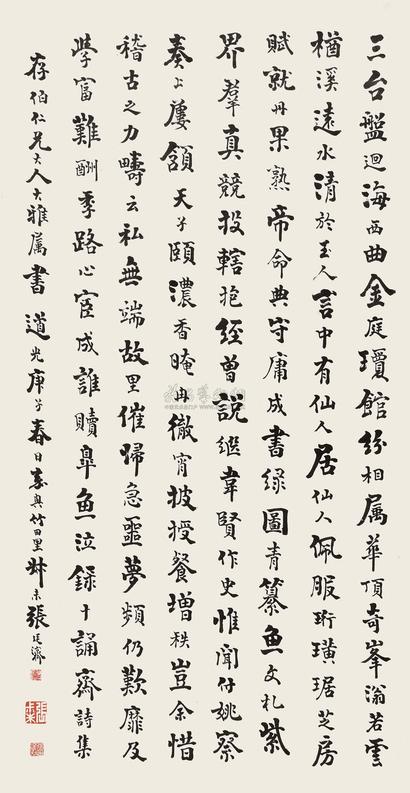 三台盤迴海西曲金庭瓊館紛相属華頂奇峯滃若雲
楢溪遠水清於玉人言中有仙人居仙人佩服珩璜琚芝房
賦就丹果熟帝命典守庸成書绿圖青纂魚文札紫
界羣真競投轄抱經曾説継韋賢作史惟聞付姚察
奏上屢頷天子頤濃香晻冉徹宵披授餐增秩豈余惜
稽古之力疇云私無端故里催歸急噩夢頻仍歎靡及
學富難酬季路心宦成誰贖臯魚泣録十誦齋詩集
存伯仁兄大人大雅属書道光庚子春日嘉興竹田里叔未張廷濟